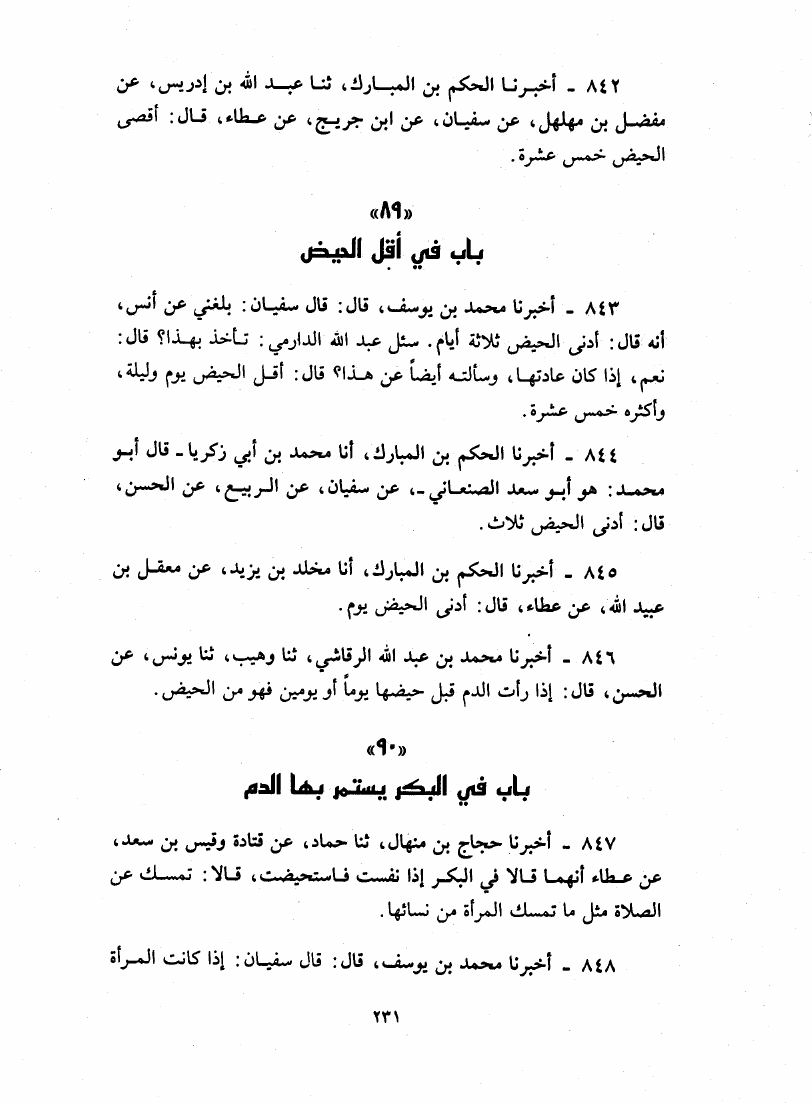 ٨٤٢ - أخبرنا الحكم بن المبارك، ثنا عبد الله بن إدريس، عن
مفضل بن مهلهل، عن سفيان، عن ابن جريج، عن عطاء، قال: أقصى
الحيض خمس عشرة.
«٨٩»
باب في أقل الحيض
٨٤٣ - أخبرنا محمد بن يوسف، قال: قال سفيان: بلغني عن أنس،
أنه قال: أدنى الحيض ثلاثة أيام. سئل عبد الله الدارمي: تأخذ بهذا؟ قال:
نعم، إذا كان عادتها، وسألته أيضاً عن هذا؟ قال: أقل الحيض يوم وليلة،
وأكثره خمس عشرة.
٨٤٤ - أخبرنا الحكم بن المبارك، أنا محمد بن أبي زكريا - قال أبو
محمد: هو أبو سعد الصنعاني -، عن سفيان، عن الربيع، عن الحسن،
قال: أدنى الحيض ثلاث.
٨٤٥ - أخبرنا الحكم بن المبارك، أنا مخلد بن يزيد، عن معقل بن
عبيد الله، عن عطاء، قال: أدنى الحيض يوم.
٨٤٦ - أخبرنا محمد بن عبد الله الرقاشي، ثنا وهيب، ثنا يونس، عن
الحسن، قال: إذا رأت الدم قبل حيضها يوماً أو يومين فهو من الحيض.
«٩٠»
باب في البكر يستمر بها الدم
٨٤٧ - أخبرنا حجاج بن منهال، ثنا حماد، عن قتادة وقيس بن سعد،
عن عطاء أنهما قالا في البكر إذا نفست فاستحيضت، قالا: تمسك عن
الصلاة مثل ما تمسك المرأة من نسائها.
٨٤٨ - أخبرنا محمد بن يوسف، قال: قال سفيان: إذا كانت المرأة
٢٣١